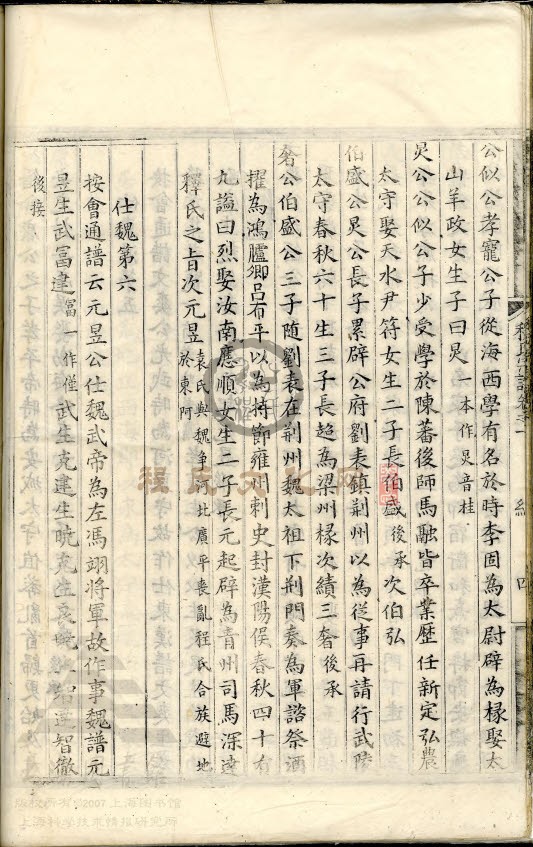 公似公孝寵公子從海西學有名於時李固為大尉辟為掾娶太
山羊政女生子曰炅一本作炅音桂
炅公公似公子少受學於陳蕃後師馬融皆卒業歷任新定弘農
太守娶天水尹符女生二子長伯盛後承次伯弘
伯盛公炅公長子累辟公府劉表鎮荆州以為從事再請行武陵
太守春秋六十生三子長超為梁州掾次績三奢後承
奢公伯盛公三子隨劉表在荆州魏太祖下荆門奏為軍諮祭酒
擢為鴻臚卿呂布平以為持節雍州刺史封漢陽侯春秋四十有
九謚曰烈娶汝南應順女生二子長元起辟為青州司馬深達
釋氏之旨次元昱袁氏與魏爭河北廣平喪亂程氏合族避地
於東阿
仕魏第六
按會通譜云元昱公仕魏武帝為左馮翊將軍故作事魏譜元
昱生武冨建冨一作僅武生克建生曉克
生智徹
後接
四
程氏文化网
版权所有©2007上海图书馆
上海科学技术情报研究所